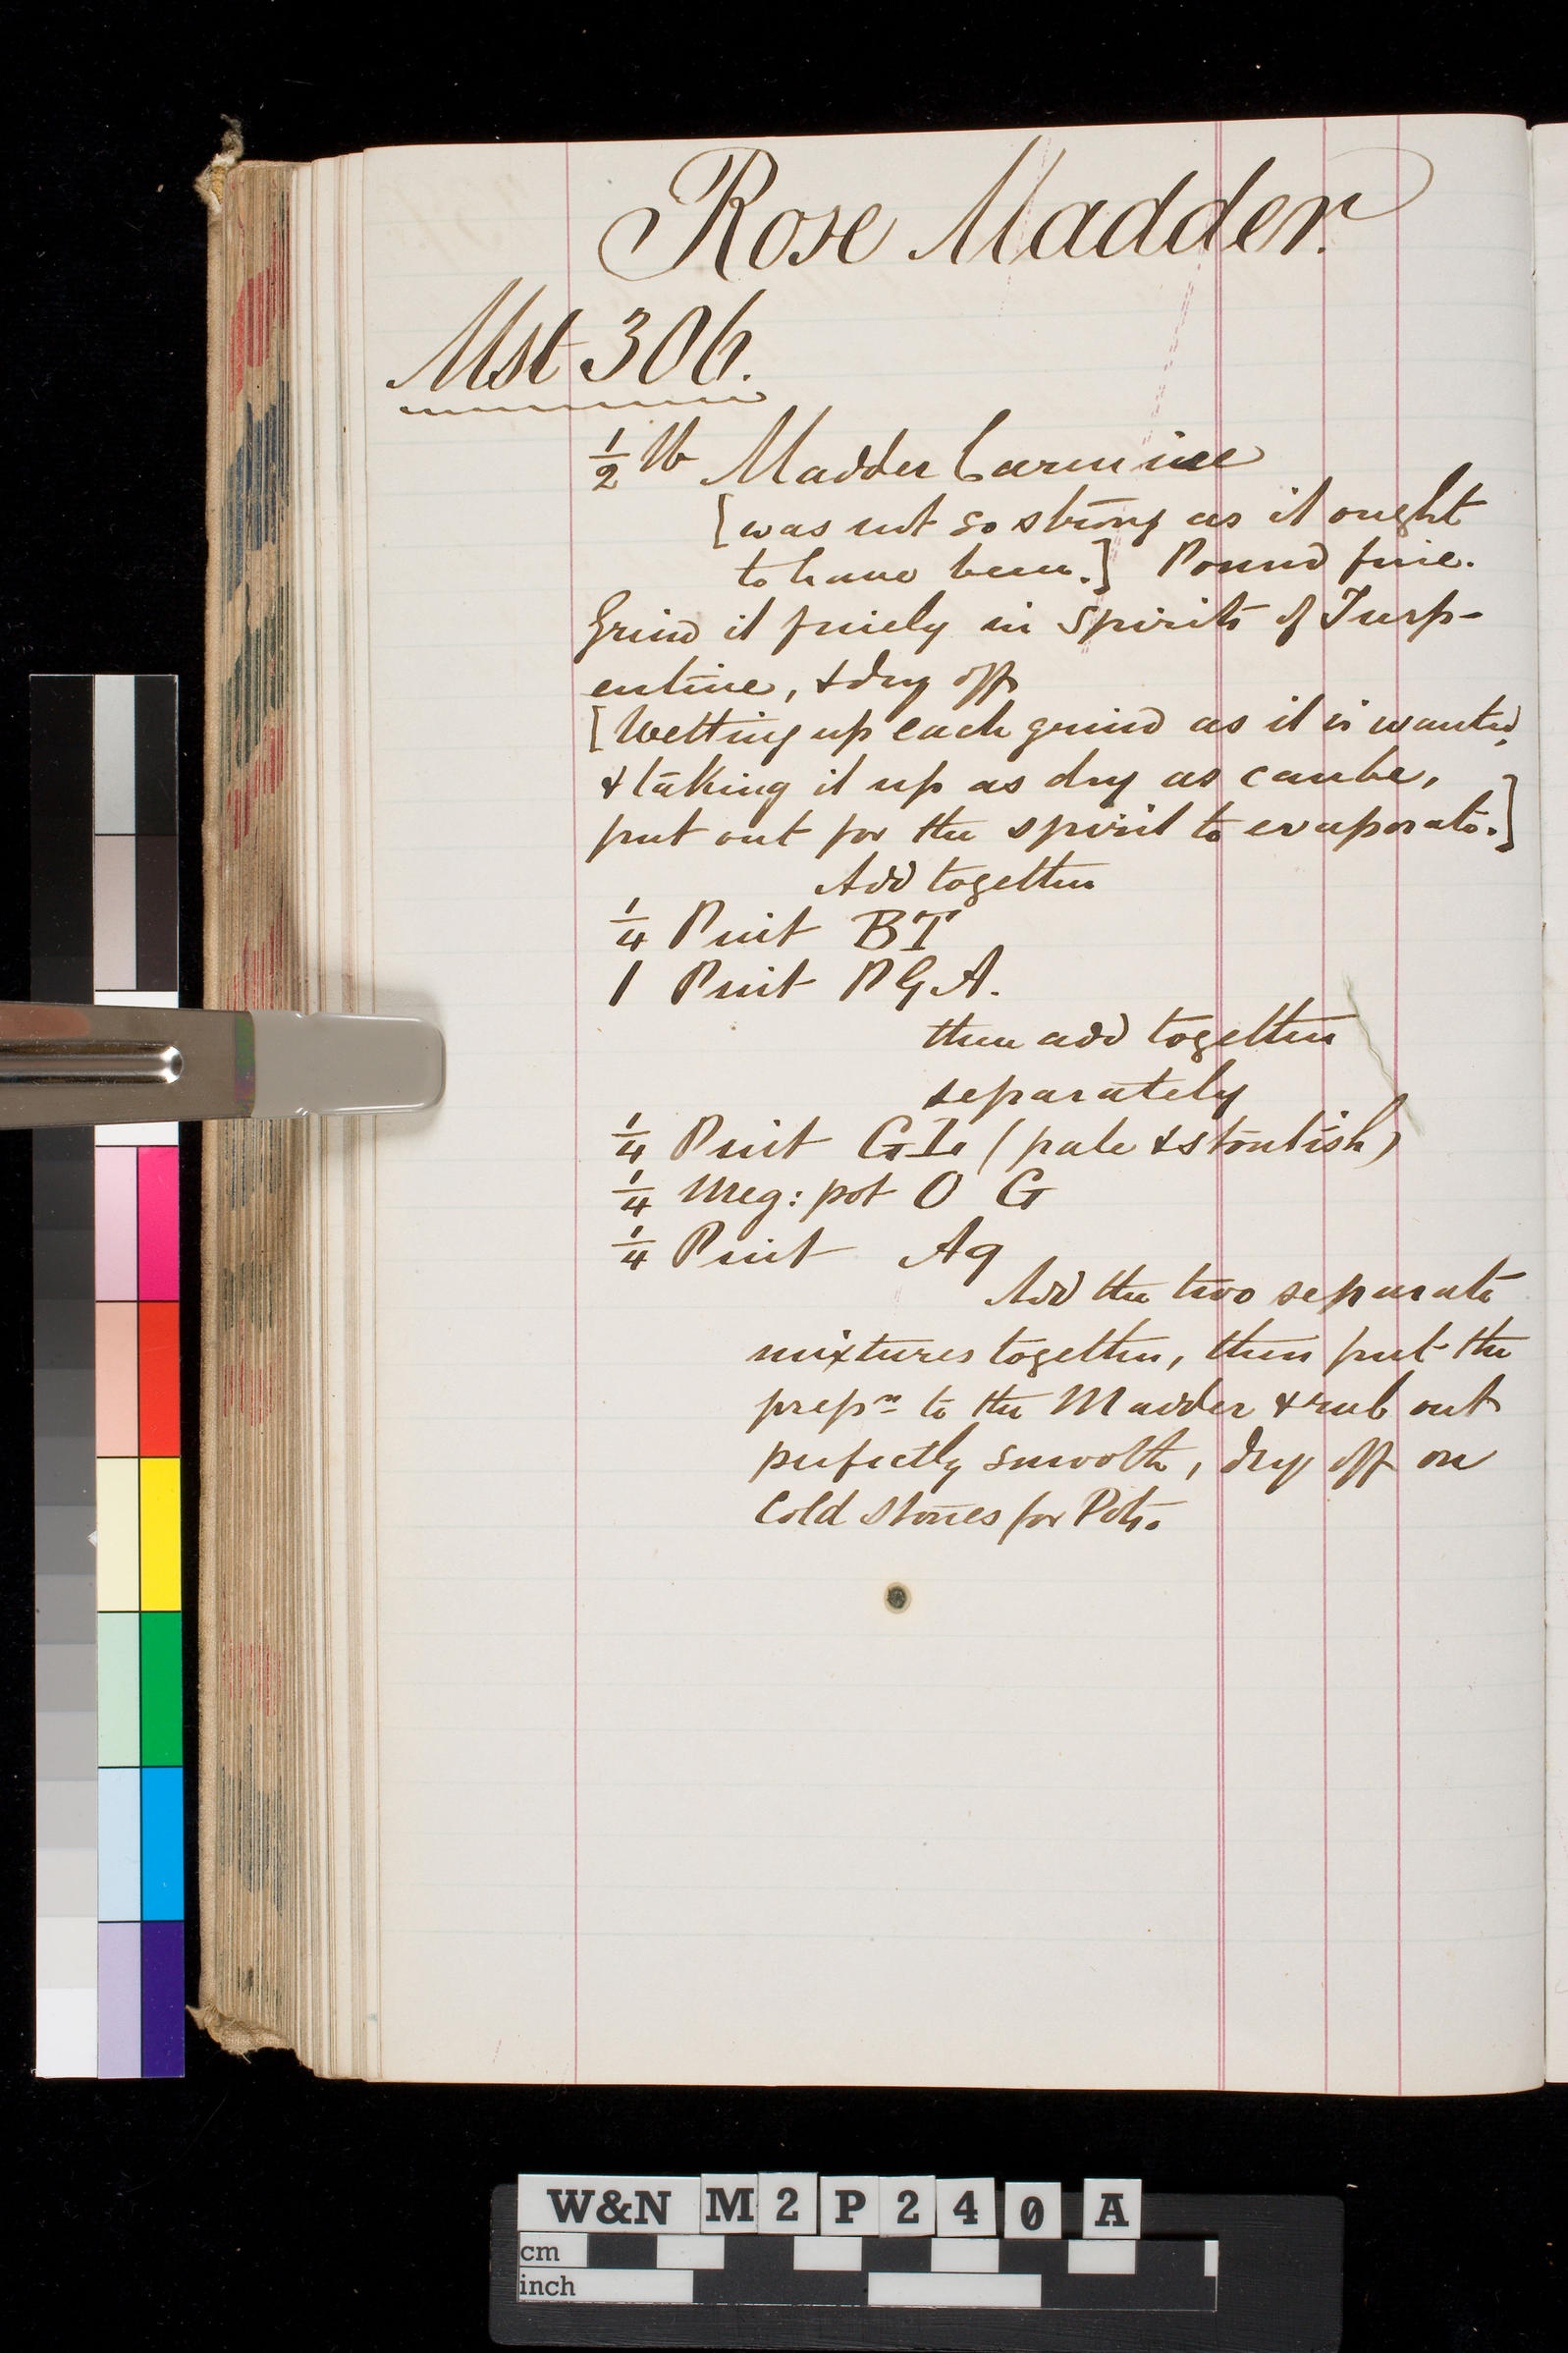 Rose Madder.
Mst 306.
½ lb Madder Carmine
[was not so strong as it ought
to have been.] Pound fine.
Grind it finely in Spirits of Turp-
entine, & dry off
[Wetting up each grind as it is wanted,
& taking it up as dry as can be,
put out for the spirit to evaporate.]
Add together
¼ Pint BT
1 Pint PGA.
then add together
separately
¼ Pint GL (pale & stoutish)
¼ Meg: pot O G
¼ Pint Aq
Add the two separate
mixtures together, then put the
prepn to the Madder & rub out
perfectly smooth, dry off on
Cold stones for Pots.
W&N M2P240 A
cm
inch